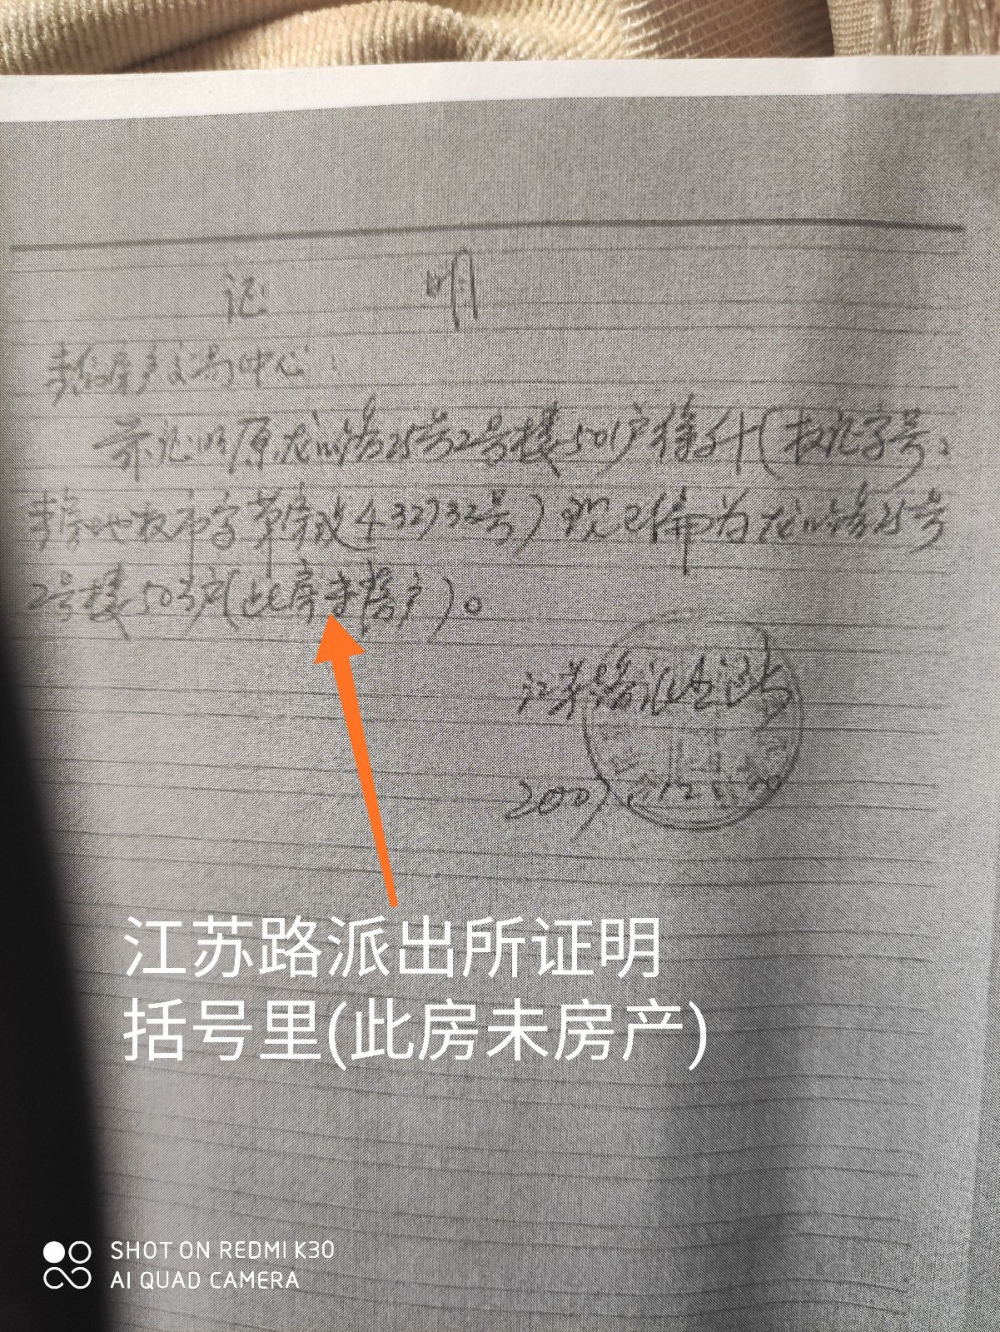 证 明
房产交易中心:
兹证明原龙山路25号2号楼501户徐升(权证字号:
房地权市字第房改432732号)现已编为龙山路25号
2号楼503户(此房未落户)。
江苏路派出所
2007.
江苏路派出所证明
括号里(此房未房产)
SHOT ON REDMI K30
AI QUAD CAMERA